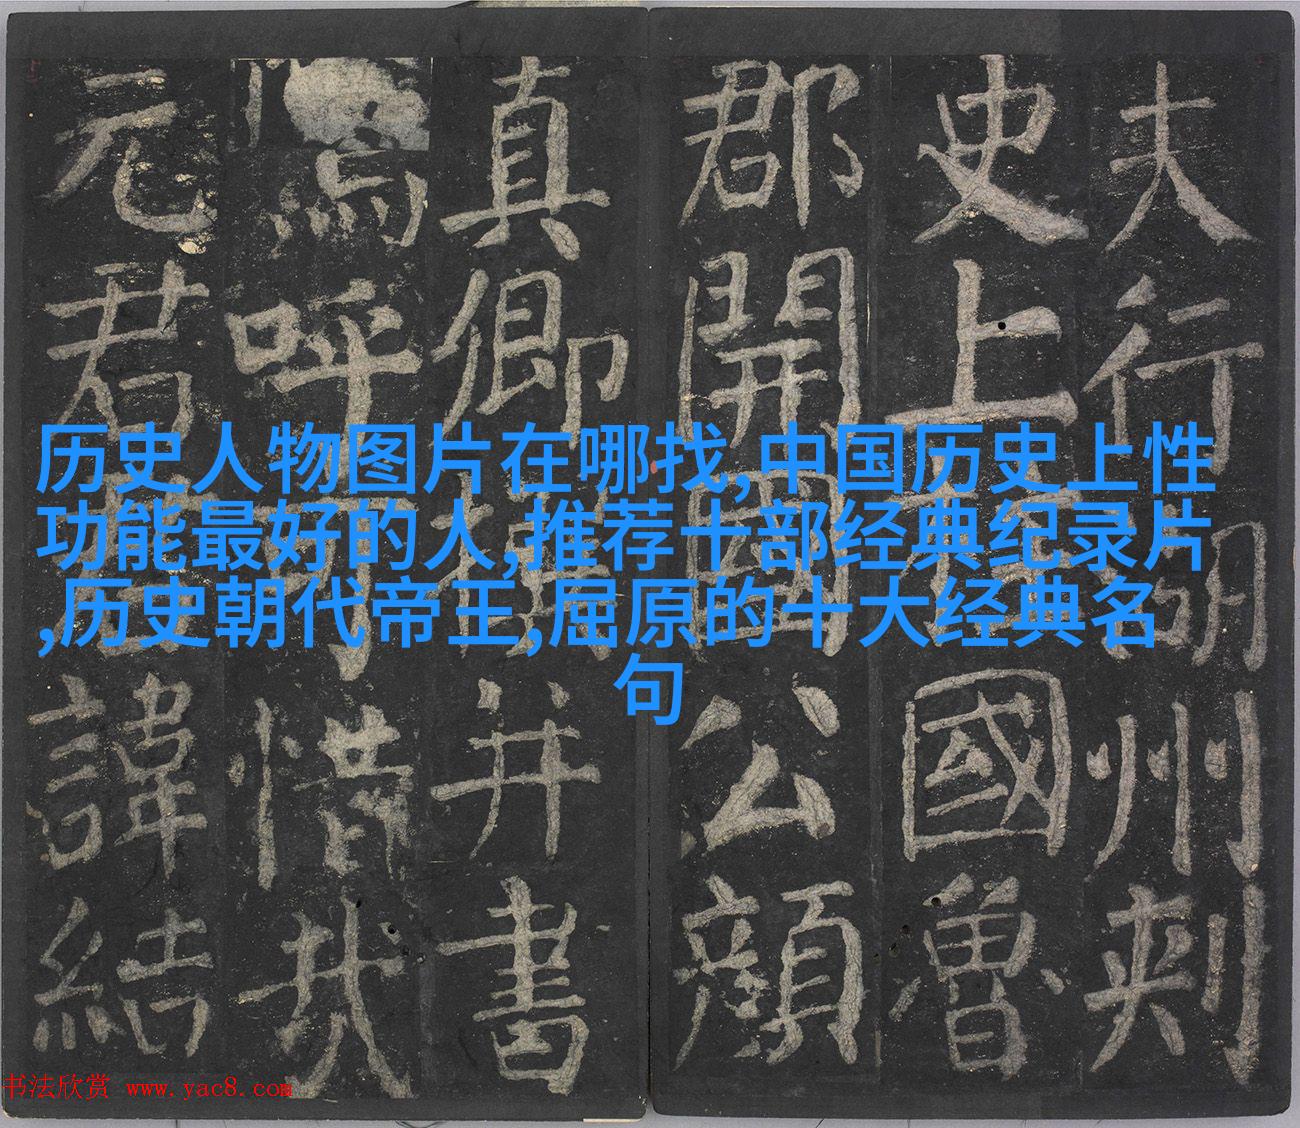 夫行湖州刺
史上柱國魯
郡開國公顏
真卿撰并書
嗚呼可惜哉
元君君諱結
历史人物图片在哪找,中国历史上性
功能最好的人,推荐十部经典纪录片
,历史朝代帝王,屈原的十大经典名
句
书法欣赏 www.yac8.com